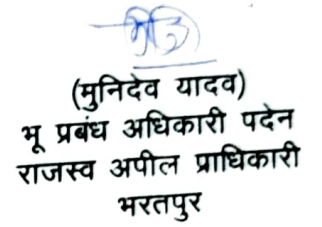 (मुनिदेव यादव)
भू प्रबंध अधिकारी पदेन
राजस्व अपील प्राधिकारी
भरतपुर